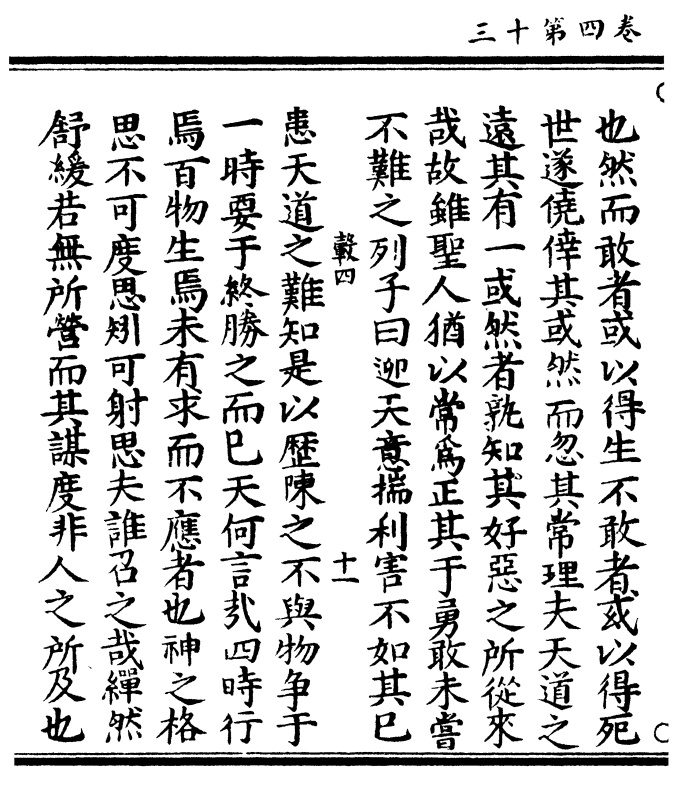 卷四第十三
也然而敢者或以得生不敢者或以得死
世遂僥倖其或然而忽其常理夫天道之
遠其有一或然者孰知其好惡之所從來
哉故雖聖人猶以常爲正其于勇敢未嘗
不難之列子曰迎天意揣利害不如其已
轂四
十一
患天道之難知是以歷陳之不與物争于
一時要于終勝之而已天何言㢤四時行
焉百物生焉未有求而不應者也神之格
思不可度思矧可射思夫誰召之哉繟然
舒緩若無所營而其謀度非人之所及也